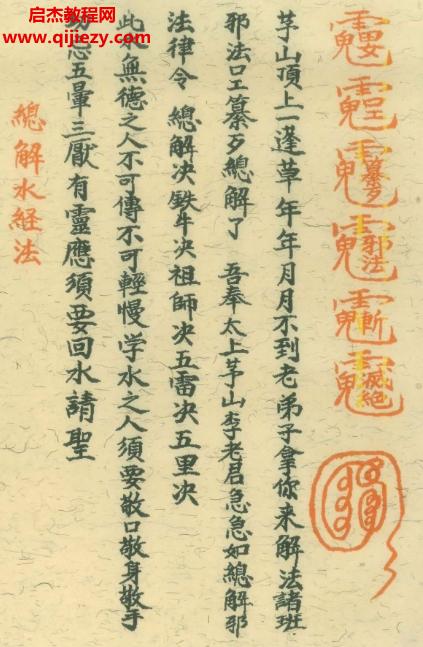 启杰教程网
www.qijiezy.com
邪法
斬
滅絕
芧山頂上一逢草年年月月不到老弟子拿你来解法諸班
邪法口工纂歹總解了 吾奉太上芧山李老君急急如總解邪
法律令 總解决鉄牛决祖師决五雷决五里决
此水無德之人不可傳不可輕慢学水之人須要敬口敬身敬手
忌五暈三厭有靈應須要回水請聖
總解水経法